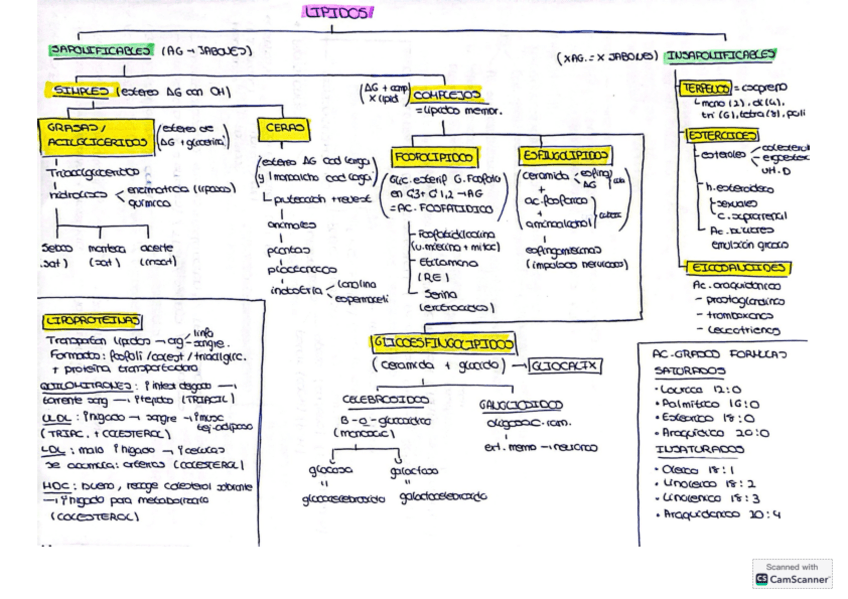 LÍPIDOS
SAPONIFICABLES (AG → JABONES)
(X AG. = X JABONES) INSAPONIFICABLES
SIMPLES (esteres AG con OH)
(AG + comp X lípid) COMPLEJOS
= lípidos membr.
GRASAS / ACILGLICÉRIDOS
(esteres de AG + glicerina)
Triacilglicéridos
hidrólisis
enzimática (lipasas)
química
Sebos mantecas aceite
(sat) (sat) (insat)
CERAS
(esteres AG cad larga y 1 monoalcohol cad larga)
protección + revest
animales
plantas
industria
lanolina
FOSFOLÍPIDOS
(Glic. esterif G. Fosfato en C3 + C1,2 → AG = AC. FOSFATÍDICO)
Fosfatidilcolina
Etilamina
(RE)
Serina
(eritrocitos)
ESFINGOLÍPIDOS
ceramida
esfing
AG
+
ac. fosfórico
+
aminoalcohol
esfingomielinas
(impulsos nerviosos)
TERPENOS = isopreno
mono (2), di (4),
tri (6), tetra (8), poli
ESTEROIDES
esteroles
colesterol
ergoster
vit. D
h. esteroideas
sexuales
c. suprarrenal
Ac. biliares
emulsión grasas
EICOSANOIDES
Ac. araquidónico
- prostaglandinas
- tromboxanos
- leucotrienos
LIPOPROTEÍNAS
Transportan lípidos → org
linfa
sangre.
Formados: fosfolí / colest / triacilglic.
+ proteína transportadora
QUILOMICRONES: intest delgado →
torrente sang → tejidos (TRIACIL)
VLDL: hígado → sangre → musc
tej. adiposo
(TRIAC. + COLESTEROL)
LDL: malo hígado → células
se acumula: arterias (COLESTEROL)
HDL: bueno, recoge colesterol sobrante
→ hígado para metabolizarlo
(COLESTEROL)
GLUCOESFINGOLÍPIDOS
(ceramida + glúcido) → GLICOCALIX
CEREBRÓSIDOS
(monosac)
glucosa galactosa
" "
glucocerebrósido galactocerebrósido
GANGLIÓSIDOS
oligosac. ram.
ext. memb → neuronas
AC. GRASOS FÓRMULAS
SATURADOS
• Láurico 12:0
• Palmítico 16:0
• Esteárico 18:0
• Araquídico 20:0
INSATURADOS
• Oleico 18:1
• Linoleico 18:2
• Linolénico 18:3
• Araquidónico 20:4
Scanned with
CS CamScanner